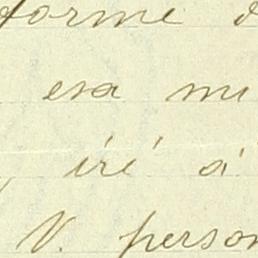 forme d
esa mi
, iré á
V. person